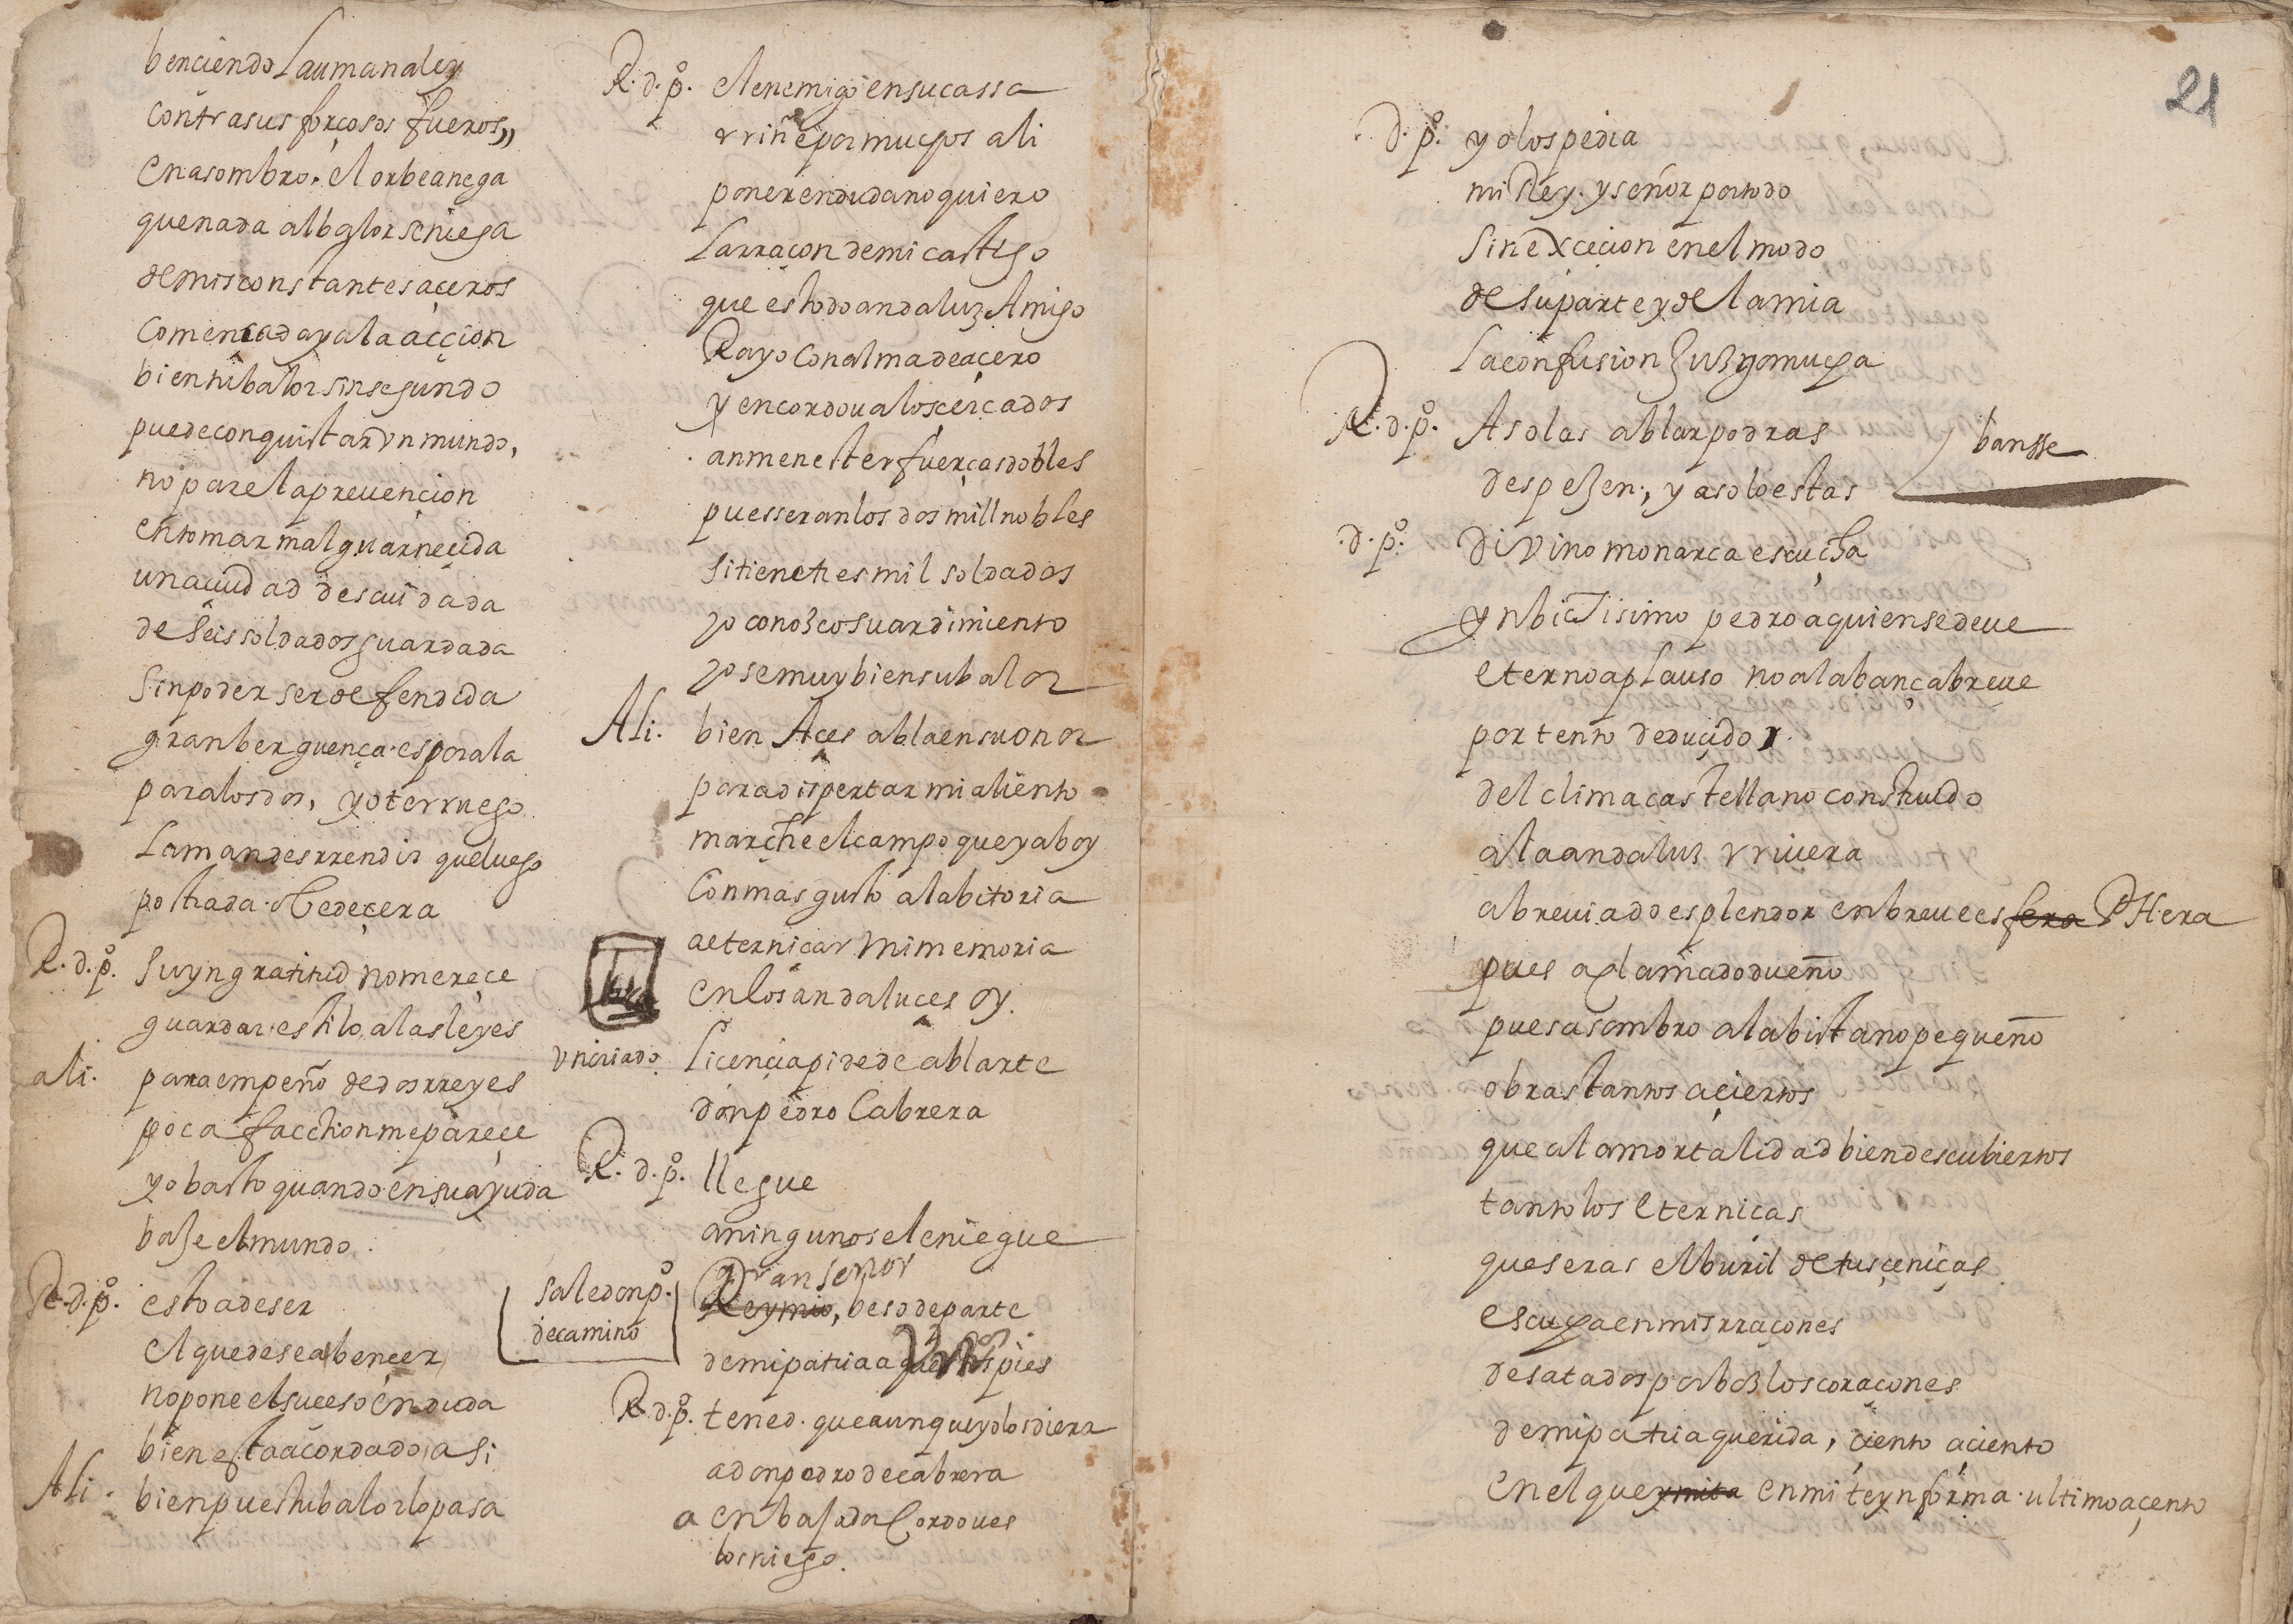 benciendo la umana ley
contra sus forçosos fueros,,
en asombro. el orbe anega
que nada al balor se niega
de mis constantes açeros
comencada ya la acçion
bien tu balor sin segundo
puede conquistar vn mundo,
no pare la preuençion
en tomar mal guarneçida
una çiudad descuidada
de seis soldados guardada
sin poder ser defendida
gran berguença. es por ala
para los dos, yo te rruego
la mandes rrendir que luego
postrada. obedeçera
R. d. pº. su yngratitud no mereçe
guardar. estilo a las leyes
ali. para empeño de dos rreyes
poca facchion me pareçe
yo basto quando en su ayuda
baje el mundo.
R. d. pº. esto a de ser
el que desea bençer
no pone el suceso en duda
bien esta acordado asi
Ali. bien pues tu balor lo pasa
R. d. pº. el enemigo en su cassa
y riñe por muchos ali
poner en duda no quiero
la rraçon de mi castigo
que es todo andaluz Amigo
Rayo con alma de açero
y en cordoua los cercados
an menester fuerças dobles
pues seran los dos mill nobles
si tiene tres mil soldados
yo conozco su ardimiento
yo se muy bien su balor
Ali. bien Açes abla en su onor
para dispertar mi aliento
marche el campo que ya boy
con mas gusto a la bitoria
a eterniçar mi memoria
en los andaluçes oy.
vn criado. liçençia pide de ablarte
don pedro Cabrera
R. d. pº. llegue
a ninguno se le niegue
sale don pº. de camino
Gran señor
Rey mio, beso de parte
de mi patria a pies
R. d. pº. tened. que aunque yo los diera
a don pedro de cabrera
a enbajador Cordoues
los niego.
21
d. pº. yo los pedia
mi Rey. y señor por todo
sin exceçion en el modo
de su parte y de la mia
la confusion juzgo mucha
R. d. pº. A solas ablar podras
banse
despejen., ya solo estas
d. pº. divino monarca escucha
ynbictisimo pedro a quien se deue
eterno aplauso no alabança breue
portento deduçido
del clima castellano construido
a la andaluz rriuera
abreuiado esplendor en breue esfera PHera
pues aclamado dueño
pues asombro a la bista no pequeño
obras tantos açiertos
que a la mortalidad bien descubiertos
tanto los eterniças
que seras el buril de tus çeniças
escucha en mis rraçones
desatados por boz los coraçones
de mi patria querida, çiento a çiento
en el que ymita en mi te ynforma. ultimo açento